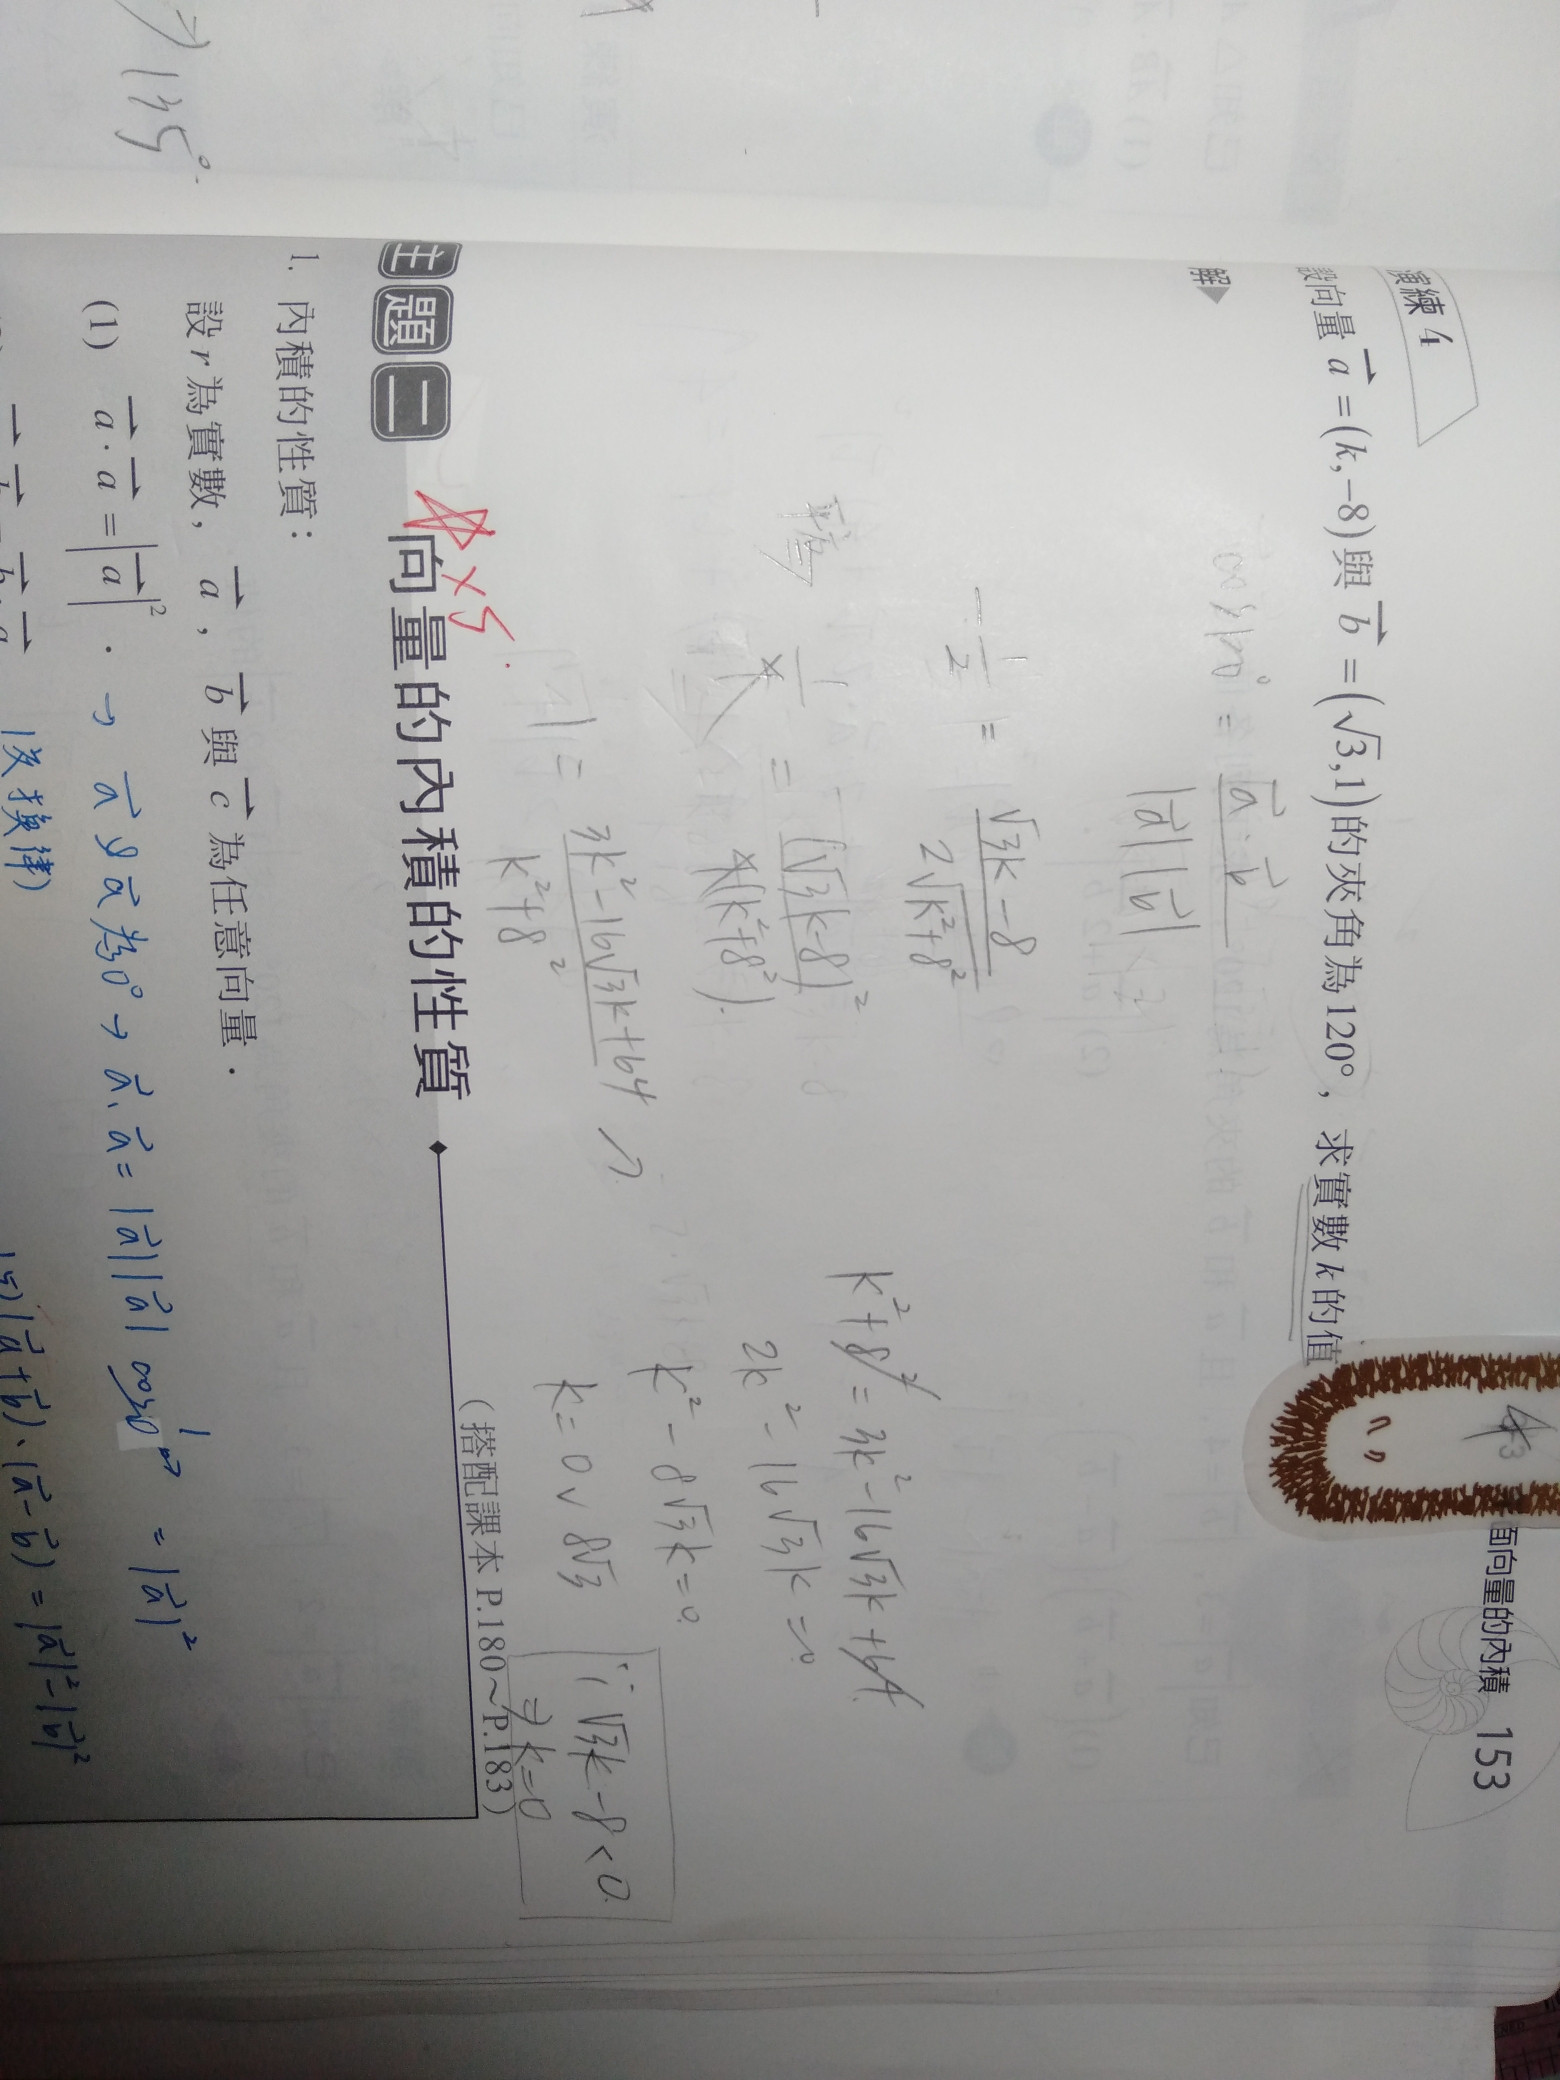 135°
面向量的內積 153
演練 4
設向量 a⃗ =(k,−8)與 b⃗ =(√3,1)的夾角為120°，求實數k的值
解
cos120° = a⃗·b⃗ / |a⃗||b⃗|
−1/2 = (√3k−8) / 2√(k²+8²)
平方
1/4 = (√3k−8)² / 4(k²+8²)
1 = (3k²−16√3k+64) / (k²+8²)
k²+8² = 3k²−16√3k+64
2k²−16√3k=0
k²−8√3k=0
k=0 ∨ 8√3
∵ √3k−8<0
⇒ k=0
×5
主題二 向量的內積的性質
（搭配課本 P.180～P.183）
1. 內積的性質：
設 r 為實數，a⃗，b⃗ 與 c⃗ 為任意向量．
(1) a⃗·a⃗=|a⃗|²． → a⃗ 夕 a⃗ 為0° → a⃗·a⃗=|a⃗||a⃗| cos0° = |a⃗|²
(5)(a⃗+b⃗)·(a⃗−b⃗)=|a⃗|²−|b⃗|²